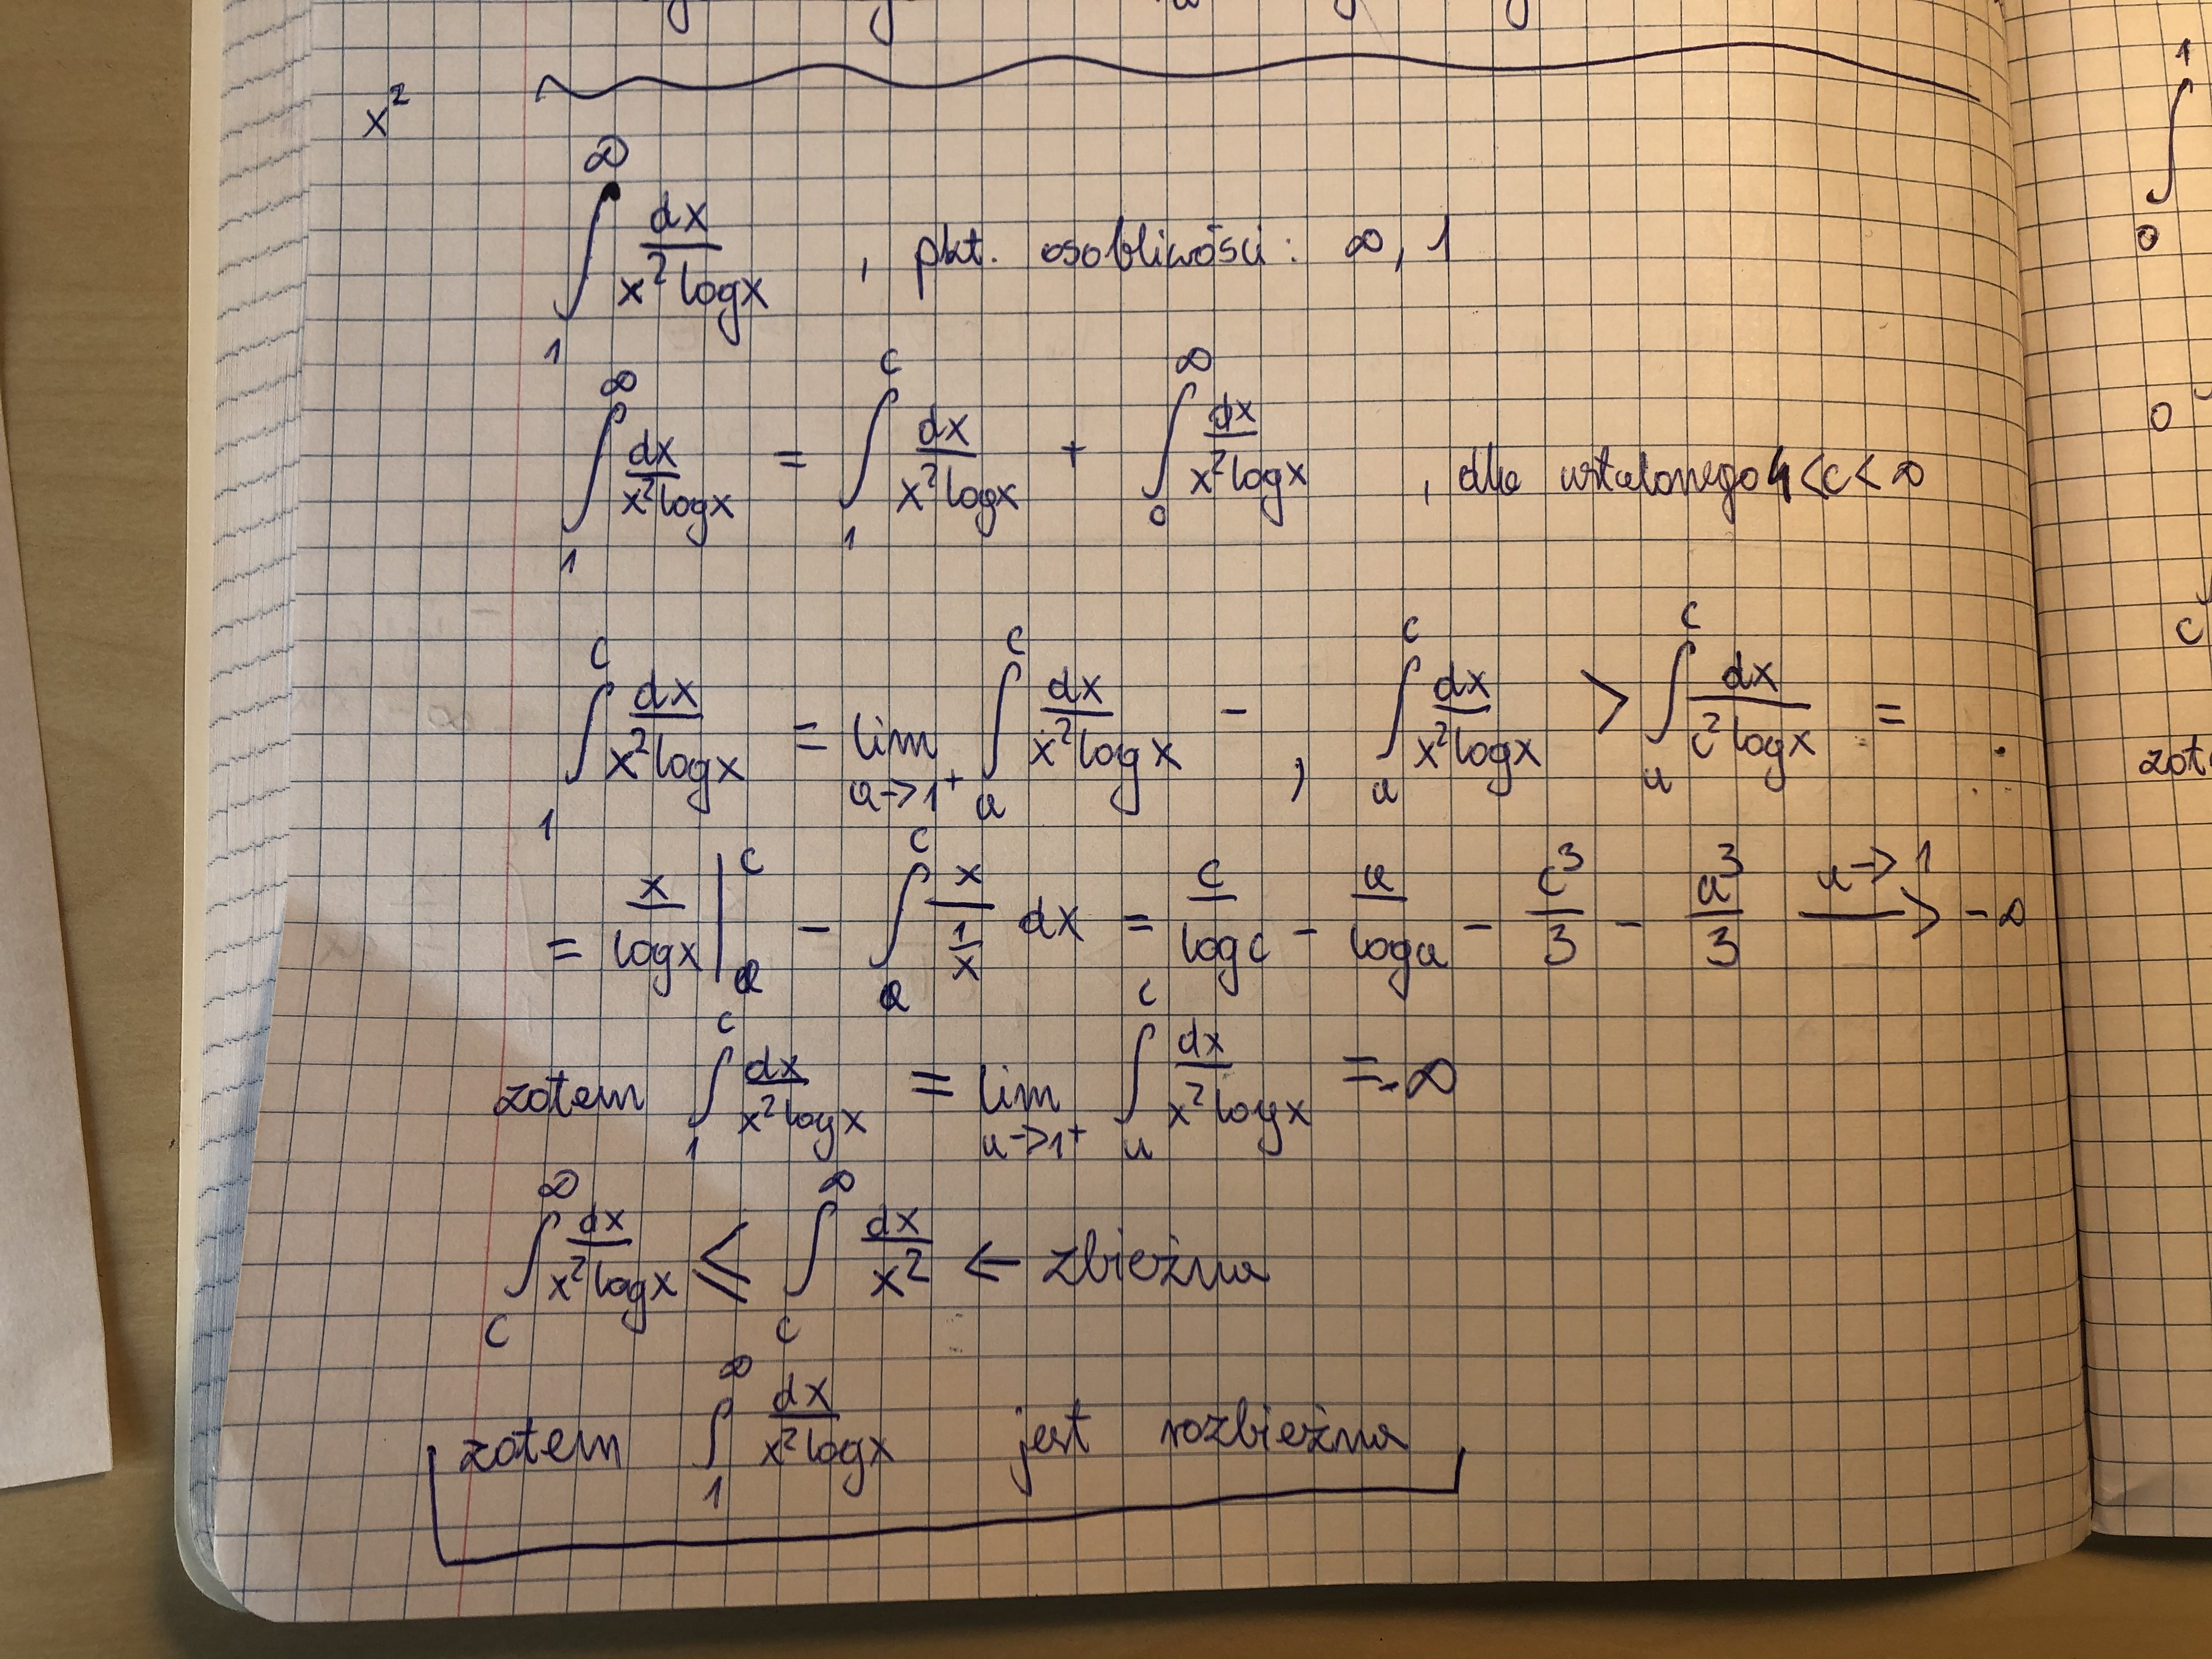 x²
∫₁^∞ dx/(x² logx) , pkt. osobliwości: ∞, 1
∫₁^∞ dx/(x² logx) = ∫₁^c dx/(x² logx) + ∫₀^∞ dx/(x² logx) , dla ustalonego 1<c<∞
∫₁^c dx/(x² logx) = lim_{a→1⁺} ∫ₐ^c dx/(x² logx) - , ∫ₐ^c dx/(x² logx) > ∫ₐ^c dx/(c² logx) =
= x/logx |ₐ^c - ∫ₐ^c x/(1/x) dx = c/logc - a/loga - c³/3 - a³/3 →^{a→1} -∞
zatem ∫₁^c dx/(x² logx) = lim_{a→1⁺} ∫ₐ^c dx/(x² logx) = -∞
∫_c^∞ dx/(x² logx) ≤ ∫_c^∞ dx/x² ← zbieżna
zatem ∫₁^∞ dx/(x² logx) jest rozbieżna
1
∫
0
0
c